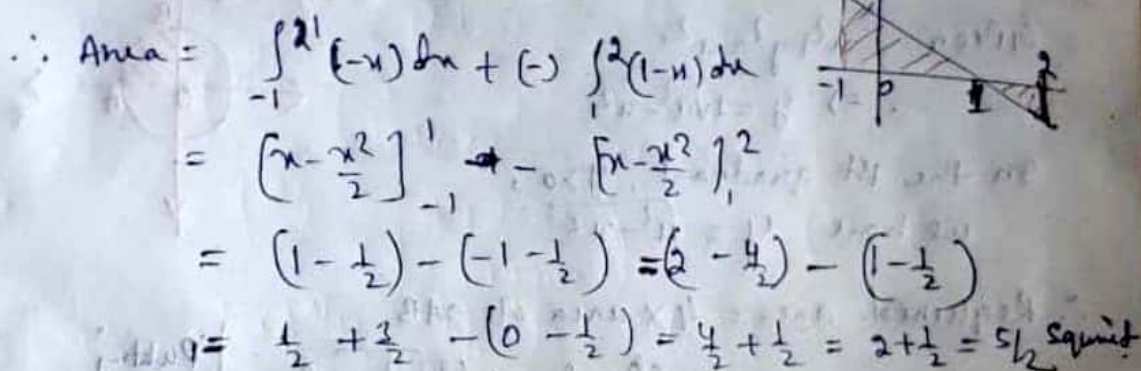 ∴ Area = ∫₋₁¹ (-x) dx + (-) ∫₁² (1-x) dx
-1 0 1 2
= [x - x²/2]₋₁¹ - [x - x²/2]₁²
= (1 - 1/2) - (-1 - 1/2) = (2 - 4/2) - (1 - 1/2)
= 1/2 + 3/2 - (0 - 1/2) = 4/2 + 1/2 = 2 + 1/2 = 5/2 Squnit